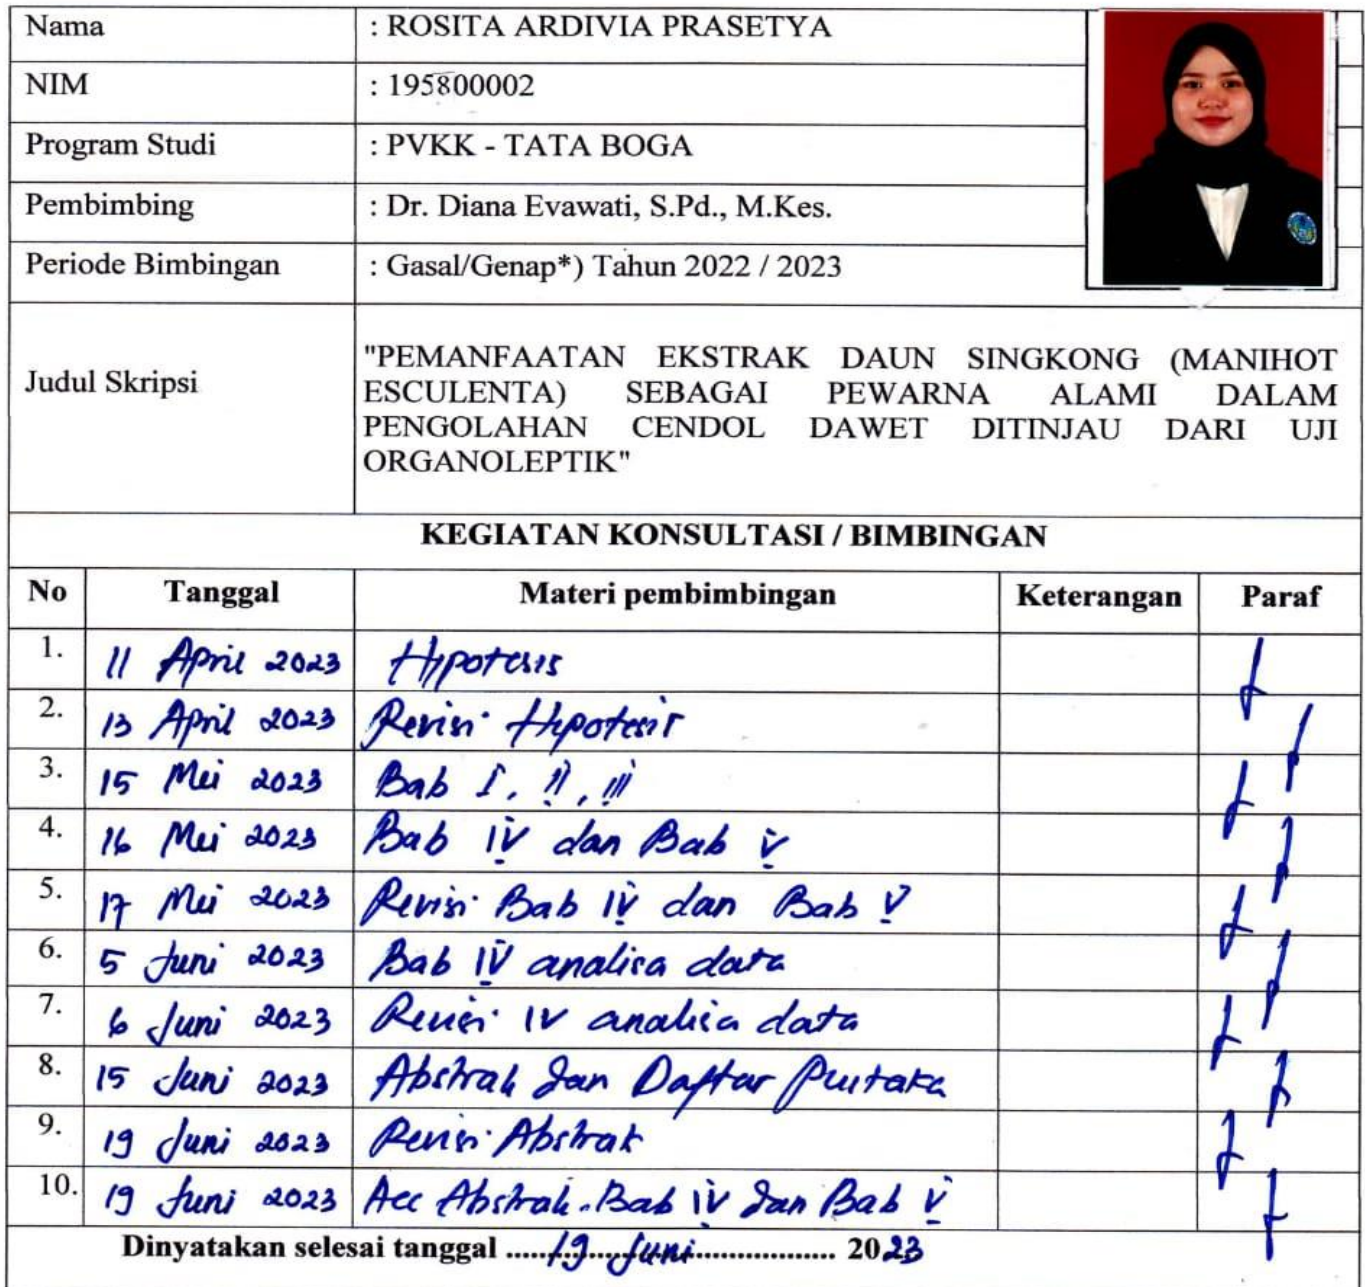 Nama : ROSITA ARDIVIA PRASETYA
NIM : 195800002
Program Studi : PVKK - TATA BOGA
Pembimbing : Dr. Diana Evawati, S.Pd., M.Kes.
Periode Bimbingan : Gasal/Genap*) Tahun 2022 / 2023
Judul Skripsi
"PEMANFAATAN EKSTRAK DAUN SINGKONG (MANIHOT
ESCULENTA) SEBAGAI PEWARNA ALAMI DALAM
PENGOLAHAN CENDOL DAWET DITINJAU DARI UJI
ORGANOLEPTIK"
KEGIATAN KONSULTASI / BIMBINGAN
No Tanggal Materi pembimbingan Keterangan Paraf
1. 11 April 2023 Hipotesis
2. 13 April 2023 Revisi Hipotesis
3. 15 Mei 2023 Bab I, II, III
4. 16 Mei 2023 Bab IV dan Bab V
5. 17 Mei 2023 Revisi Bab IV dan Bab V
6. 5 Juni 2023 Bab IV analisa data
7. 6 Juni 2023 Revisi IV analisa data
8. 15 Juni 2023 Abstrak dan Daftar Pustaka
9. 19 Juni 2023 Revisi Abstrak
10. 19 Juni 2023 Acc Abstrak. Bab IV dan Bab V
Dinyatakan selesai tanggal ...... 19 Juni ...... 2023